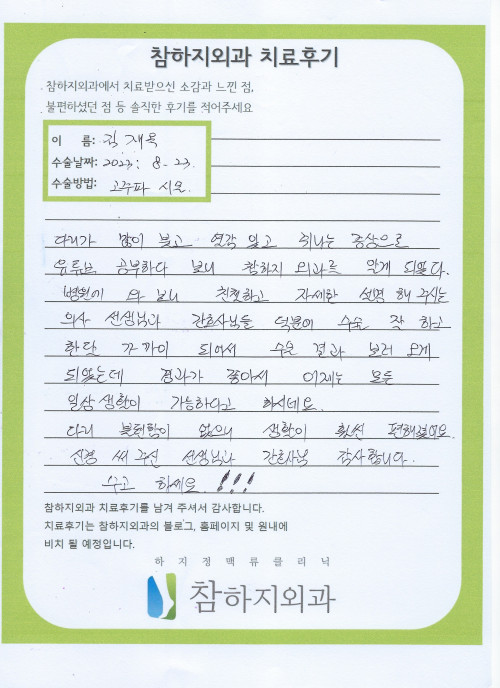 참하지외과 치료후기
참하지외과에서 치료받으신 소감과 느낀 점,
불편하셨던 점 등 솔직한 후기를 적어주세요
이 름: 김재욱
수술날짜: 2023. 8-23.
수술방법: 고주파 시술.
다리가 많이 붓고 열감 있고 쥐나는 증상으로
유튜브 공부하다 보니 참하지 외과를 알게 되었다.
병원에 와 보니 친절하고 자세한 설명 해 주시는
의사 선생님과 간호사님들 덕분에 수술 잘 하고
한달 가까이 되어서 수술 결과 보러 오게
되었는데 경과가 좋아서 이제는 모든
일상생활이 가능하다고 하시네요.
다리 불편함이 없으니 생활이 훨씬 편해졌어요.
신경 써 주신 선생님과 간호사님 감사합니다.
수고 하세요!!!
참하지외과 치료후기를 남겨 주셔서 감사합니다.
치료후기는 참하지외과의 블로그, 홈페이지 및 원내에
비치 될 예정입니다.
하지정맥류클리닉
참하지외과